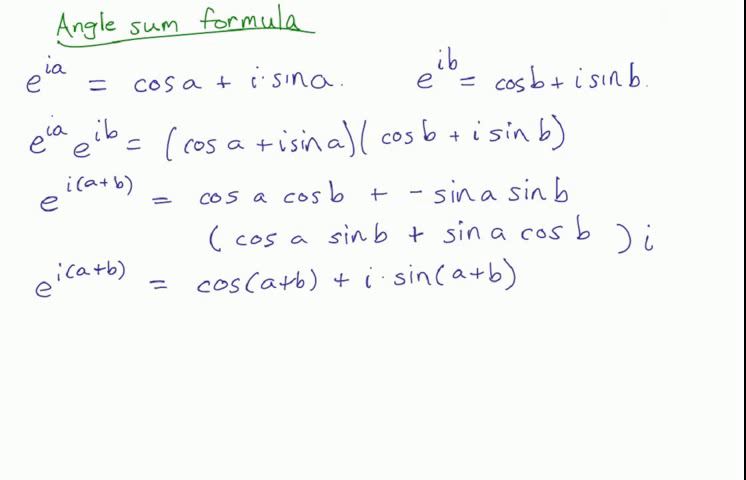 Angle sum formula
e^{ia} = cos a + i·sin a. e^{ib} = cos b + i sin b.
e^{ia} e^{ib} = (cos a + i sin a)(cos b + i sin b)
e^{i(a+b)} = cos a cos b + - sin a sin b
(cos a sin b + sin a cos b) i
e^{i(a+b)} = cos(a+b) + i·sin(a+b)